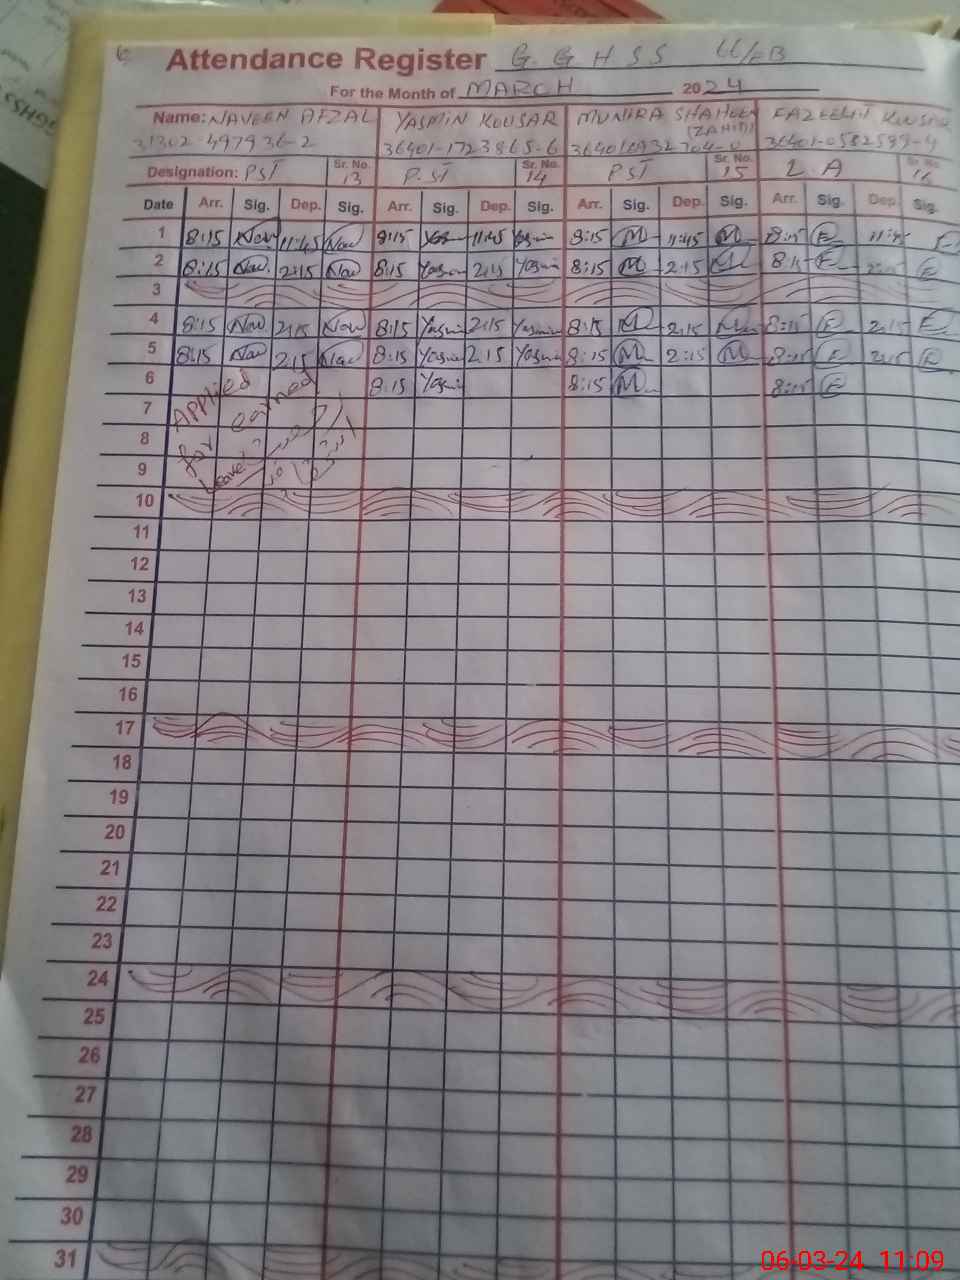 6
Attendance Register G. G H S S 11/EB
For the Month of MARCH 2024
Name: NAVEEN AFZAL YASMIN KOUSAR MUNIRA SHAHEEN FAZEELAT KOUSAR
(ZAHID)
36401-1723865-6 36401-0582589-4
Designation: PST Sr. No. 13 P.ST Sr. No. 14 PST Sr. No. 15 L.A Sr. No. 16
Date Arr. Sig. Dep. Sig. Arr. Sig. Dep. Sig. Arr. Sig. Dep. Sig. Arr. Sig. Dep. Sig.
1 8:15 Nav 11:45 Nav 8:15 Yas 11:45 Yasmin 8:15 M 11:45 M 8:15 F 11:45 F
2 8:15 Nav 2:15 Nav 8:15 Yasmin 2:15 Yasmin 8:15 M 2:15 M 8:15 F 2:15 F
3
4 8:15 Nav 2:15 Nav 8:15 Yasmin 2:15 Yasmin 8:15 M 2:15 M 8:15 F 2:15 F
5 8:15 Nav 2:15 Nav 8:15 Yasmin 2:15 Yasmin 8:15 M 2:15 M 8:15 F 2:15 F
6 8:15 Yasmin 8:15 M 8:15 F
Applied
for earned
leave
7
8
9
10
11
12
13
14
15
16
17
18
19
20
21
22
23
24
25
26
27
28
29
30
31
06-03-24 11:09